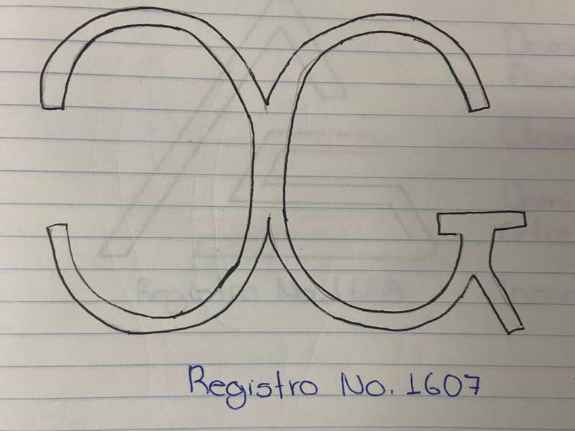 ƆG
Registro No. 1607